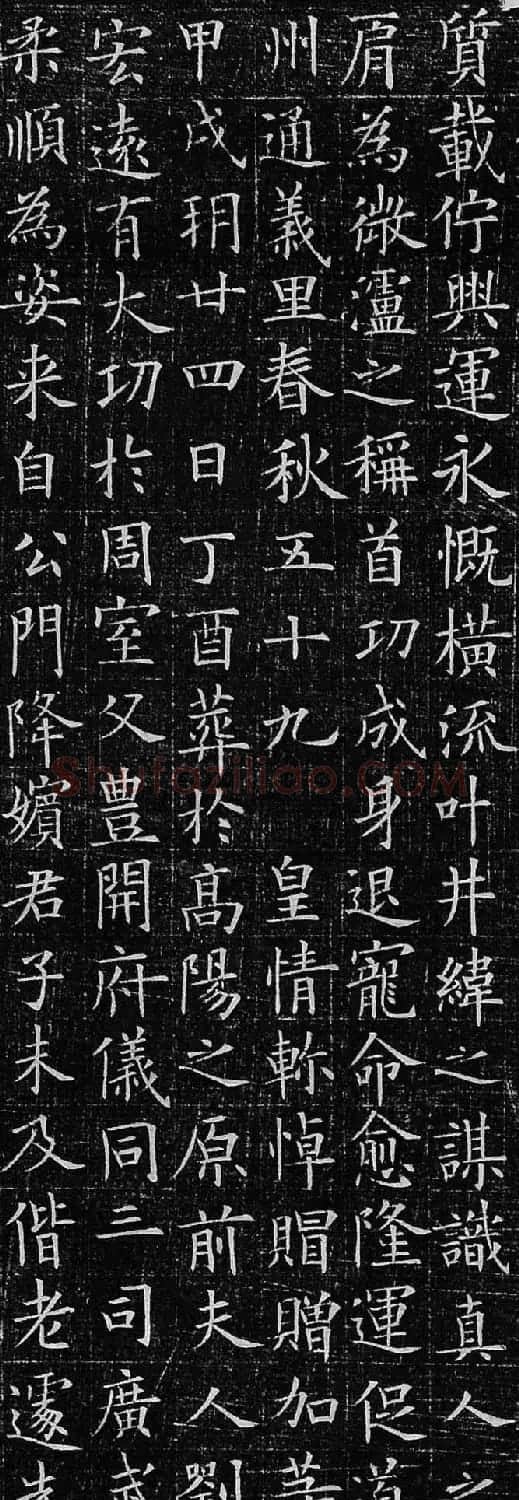 質載佇興運永慨橫流叶井緯之謀識真人之
屑為微瀘之稱首功成身退寵命愈隆運促道
州通義里春秋五十九 皇情軫悼賵贈加等
甲戌玥廿四日丁酉葬於髙陽之原前夫人劉
宏遠有大功於周室父豊開府儀同三司廣
柔順為姿来自公門降嬪君子未及偕老遽先
Shufaziliao.COM